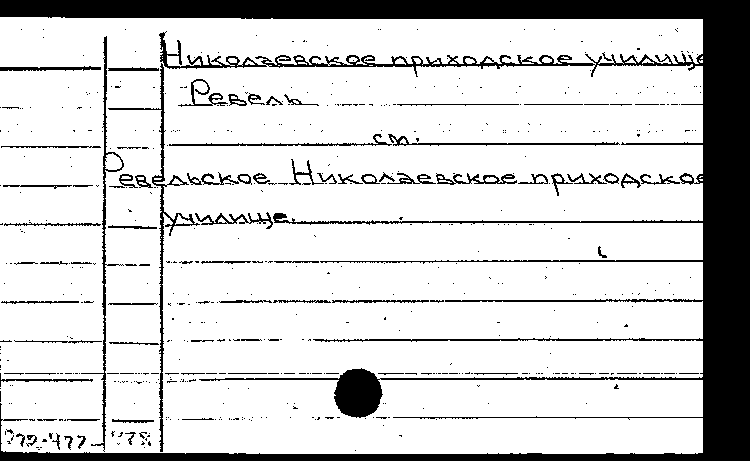 Николаевское приходское училище
Ревель
ст.
Ревельское Николаевское приходское
училище.